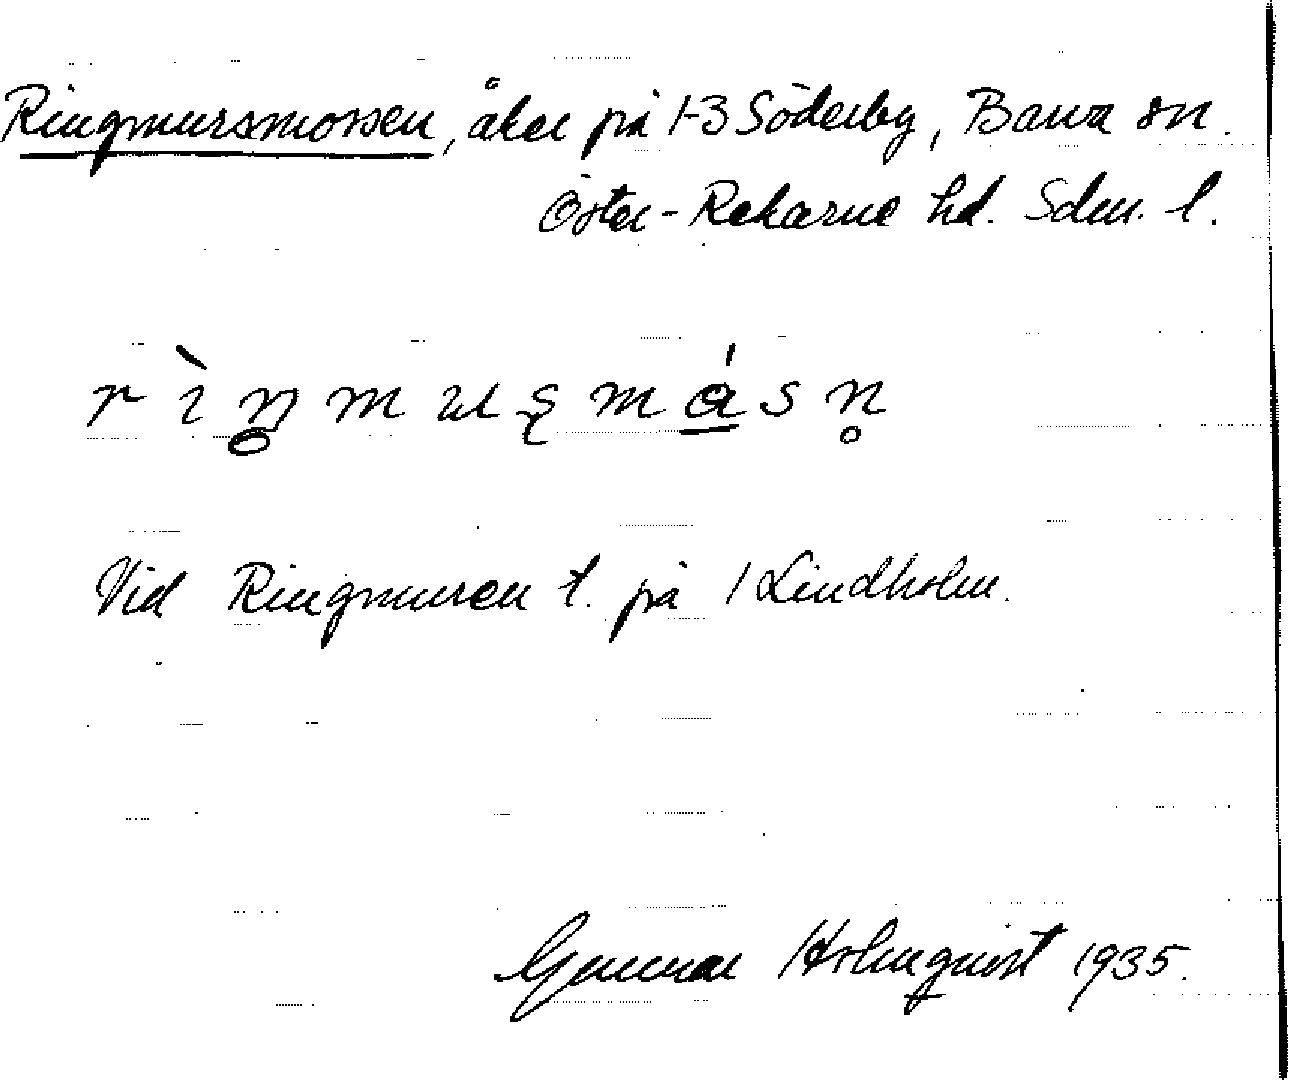 Ringmursmossen, åker på 1-3 Söderby, Barva sn.
Öster-Rekarne hd. Sdm. l.
Vid Ringmuren t. på 1 Lindholm.
Gunnar Holmquist 1935.